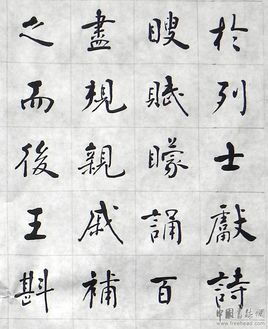 於列士獻詩
瞍賦矇誦百
盡規親戚補
之而後王斟
www.freehead.com